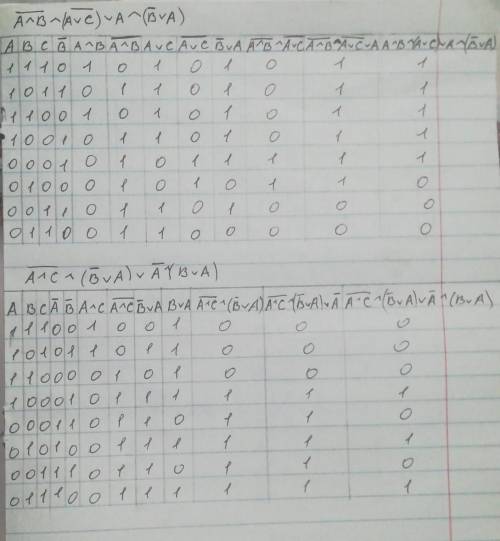 A̅^̅B̅ ^ (A̅∨̅C̅) ∨ A ^ (B̅ ∨ A)
A B C B̅ A^B A̅^̅B̅ A∨C A̅∨̅C̅ B̅∨A A̅^̅B̅^A̅∨̅C̅ A̅^̅B̅^A̅∨̅C̅∨A A̅^̅B̅^(A̅∨̅C̅)∨A^(B̅∨A)
1 1 1 0 1 0 1 0 1 0 1 1
1 0 1 1 0 1 1 0 1 0 1 1
1 1 0 0 1 0 1 0 1 0 1 1
1 0 0 1 0 1 1 0 1 0 1 1
0 0 0 1 0 1 0 1 1 1 1 1
0 1 0 0 0 1 0 1 0 1 1 0
0 0 1 1 0 1 1 0 1 0 0 0
0 1 1 0 0 1 1 0 0 0 0 0
A̅^̅C̅ ^ (B̅ ∨ A) ∨ A̅ ^ (B ∨ A)
A B C A̅ B̅ A^C A̅^̅C̅ B̅∨A B∨A A̅^̅C̅^(B̅∨A) A̅^̅C̅^(B̅∨A)∨A̅ A̅^̅C̅^(B̅∨A)∨A̅^(B∨A)
1 1 1 0 0 1 0 0 1 0 0 0
1 0 1 0 1 1 0 1 1 0 0 0
1 1 0 0 0 0 1 0 1 0 0 0
1 0 0 0 1 0 1 1 1 1 1 1
0 0 0 1 1 0 1 1 0 1 1 0
0 1 0 1 0 0 1 1 1 1 1 1
0 0 1 1 1 0 1 1 0 1 1 0
0 1 1 1 0 0 1 1 1 1 1 1